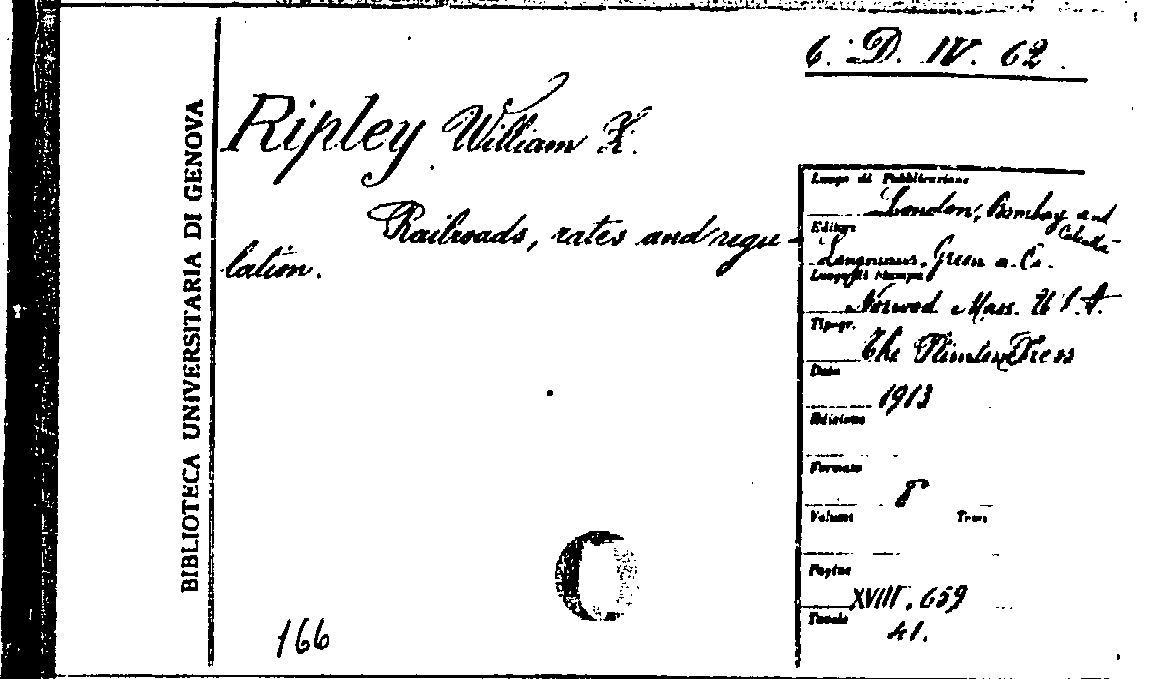 6. D. IV. 62.
BIBLIOTECA UNIVERSITARIA DI GENOVA
Ripley William Z.
Railroads, rates and regu-
lation.
166
Luogo di Pubblicazione
London, Bombay and
Calcutta
Editore
Longmans, Green a. Co.
Luogo di Stampa
Norwood Mass. U.S.A.
Tipogr.
The Plimton Press
Data
1913
Edizione
Formato
8°
Volumi Tomi
Pagine
XVIII, 659
Tavole
41.